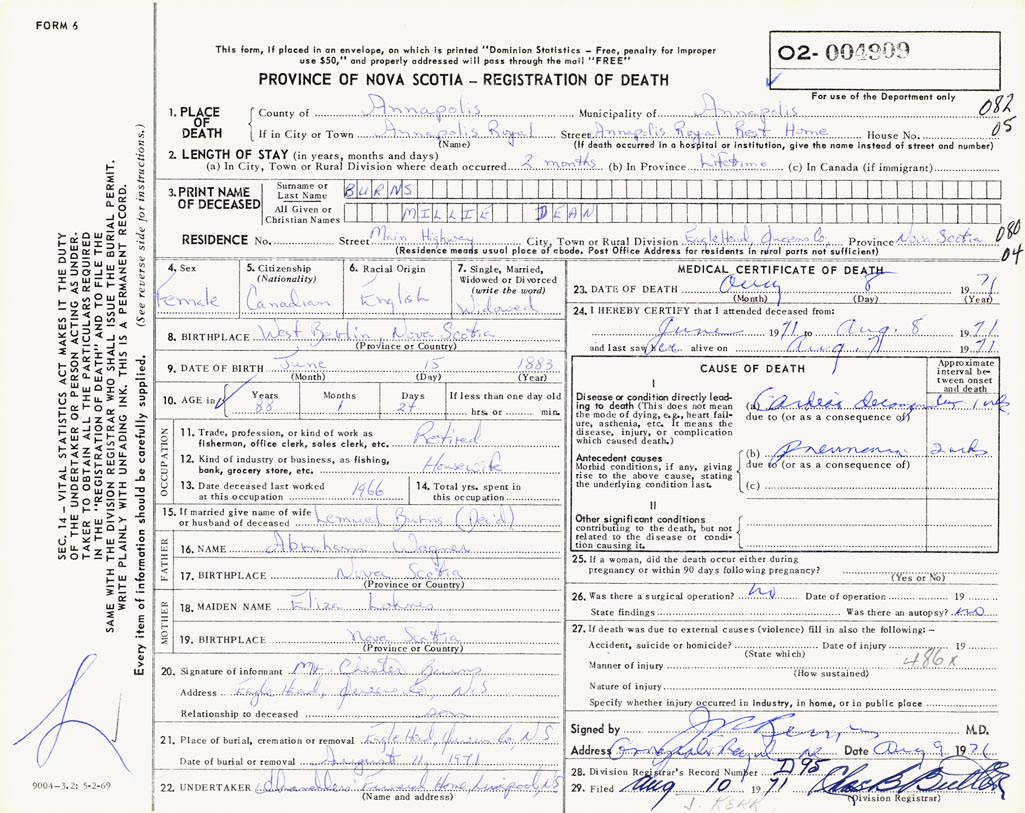 FORM 6
This form, if placed in an envelope, on which is printed "Dominion Statistics – Free, penalty for improper
use $50," and properly addressed will pass through the mail "FREE"
PROVINCE OF NOVA SCOTIA – REGISTRATION OF DEATH
02-004909
For use of the Department only
082
05
1. PLACE OF DEATH
County of Annapolis Municipality of Annapolis
If in City or Town Annapolis Royal Street Annapolis Royal Rest Home House No.
(Name) (If death occurred in a hospital or institution, give the name instead of street and number)
2. LENGTH OF STAY (in years, months and days)
(a) In City, Town or Rural Division where death occurred 2 months (b) In Province Lifetime (c) In Canada (if immigrant)
3. PRINT NAME OF DECEASED
Surname or Last Name BURNS
All Given or Christian Names MILLIE DEAN
RESIDENCE No. Street Main Highway City, Town or Rural Division Eagle Head, Queens Co, Province Nova Scotia
080
04
(Residence means usual place of abode. Post Office Address for residents in rural parts not sufficient)
4. Sex
Female
5. Citizenship
(Nationality)
Canadian
6. Racial Origin
English
7. Single, Married,
Widowed or Divorced
(write the word)
Widowed
8. BIRTHPLACE West Berlin, Nova Scotia
(Province or Country)
9. DATE OF BIRTH June 15 1883
(Month) (Day) (Year)
10. AGE in Years Months Days If less than one day old
88 1 24 hrs. or min.
OCCUPATION
11. Trade, profession, or kind of work as
fisherman, office clerk, sales clerk, etc. Retired
12. Kind of industry or business, as fishing,
bank, grocery store, etc. Housewife
13. Date deceased last worked
at this occupation 1966
14. Total yrs. spent in
this occupation
15. If married give name of wife
or husband of deceased Lemuel Burns (Dec'd)
FATHER
16. NAME Abraham Wagner
17. BIRTHPLACE Nova Scotia
(Province or Country)
MOTHER
18. MAIDEN NAME Eliza Lohnes
19. BIRTHPLACE Nova Scotia
(Province or Country)
20. Signature of informant Mr. Chester Burns
Address Eagle Head, Queens Co, N.S
Relationship to deceased son
21. Place of burial, cremation or removal Eagle Head, Queens Co, NS
Date of burial or removal August 11, 1971
22. UNDERTAKER Chandlers Funeral Home, Liverpool, NS
(Name and address)
MEDICAL CERTIFICATE OF DEATH
23. DATE OF DEATH Aug 8 1971
(Month) (Day) (Year)
24. I HEREBY CERTIFY that I attended deceased from:
June 1971 to Aug. 8 1971
and last saw her alive on Aug. 7 1971
CAUSE OF DEATH
Approximate
interval between
onset
and death
I
Disease or condition directly leading
to death (This does not
mean the mode of dying, e.g., heart failure,
asthenia, etc. It means the
disease, injury, or complication
which caused death.)
(a) Cardiac
due to (or as a consequence of)
Antecedent causes
Morbid conditions, if any, giving
rise to the above cause, stating
the underlying condition last.
(b) pneumonia 2 wks
due to (or as a consequence of)
(c)
II
Other significant conditions
contributing to the death, but not
related to the disease or condition
causing it.
25. If a woman, did the death occur either during
pregnancy or within 90 days following pregnancy?
(Yes or No)
26. Was there a surgical operation? no Date of operation 19
State findings Was there an autopsy? no
27. If death was due to external causes (violence) fill in also the following: –
Accident, suicide or homicide? Date of injury 19
(State which)
486x
Manner of injury
(How sustained)
Nature of injury
Specify whether injury occurred in industry, in home, or in public place
Signed by M.D.
Address Annapolis Royal Date Aug 9 1971
28. Division Registrar's Record Number D95
29. Filed Aug 10 1971 Chas B Butler
(Division Registrar)
J. KERR
SEC. 14 – VITAL STATISTICS ACT MAKES IT THE DUTY
OF THE UNDERTAKER OR PERSON ACTING AS UNDERTAKER
TO OBTAIN ALL THE PARTICULARS REQUIRED
IN THE "REGISTRATION OF DEATH" AND TO FILE THE
SAME WITH THE DIVISION REGISTRAR WHO SHALL ISSUE THE BURIAL PERMIT.
WRITE PLAINLY WITH UNFADING INK. THIS IS A PERMANENT RECORD.
Every item of information should be carefully supplied. (See reverse side for instructions.)
9004-3.2: 5-2-69